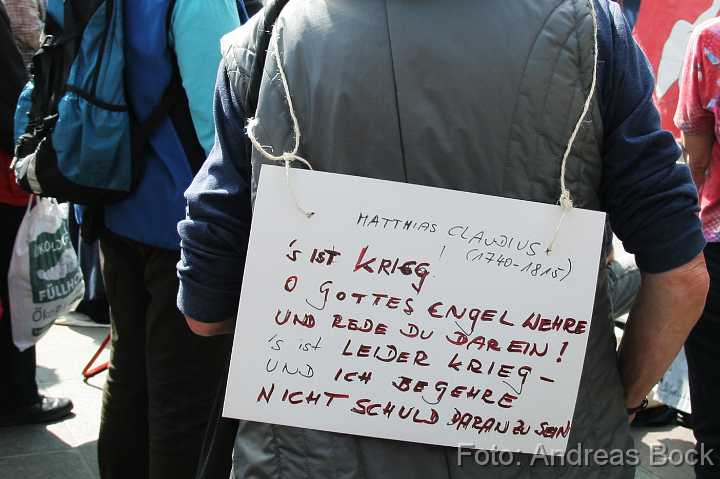 MATTHIAS CLAUDIUS
(1740-1815)
's IST KRIEG!
O GOTTES ENGEL WEHRE
UND REDE DU DAREIN!
's ist LEIDER KRIEG-
UND ICH BEGEHRE
NICHT SCHULD DARAN ZU SEIN
FÜLLHO
Foto: Andreas Bock